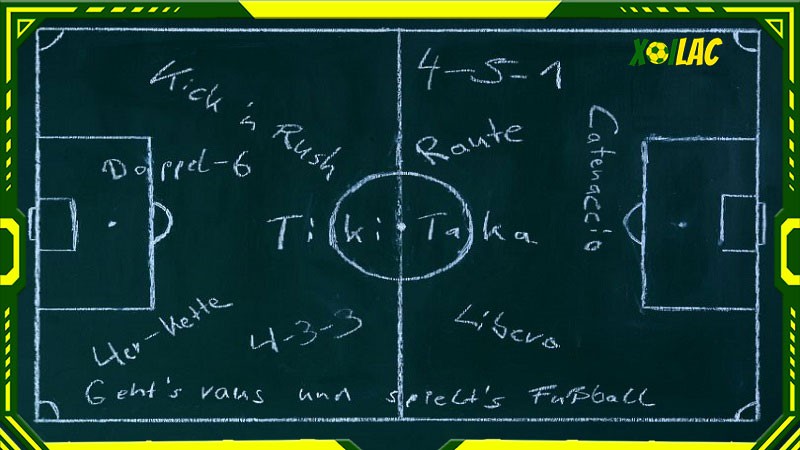 XOILAC
4-5-1
Kick 'n Rush
Raute
Catenaccio
Doppel-6
Tiki Taka
4er-Kette
4-3-3
Libero
Geht's raus und spielt's Fußball